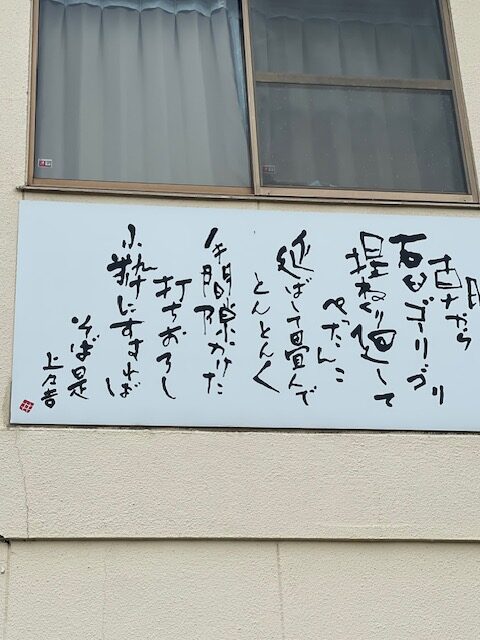 昔から
石臼ゴーリゴリ
捏ねり廻して
ぺったんこ
延ばして畳んで
とんとん〱
手間隙かけた
打ちおろし
小粋にすすれば
そば是
上々吉